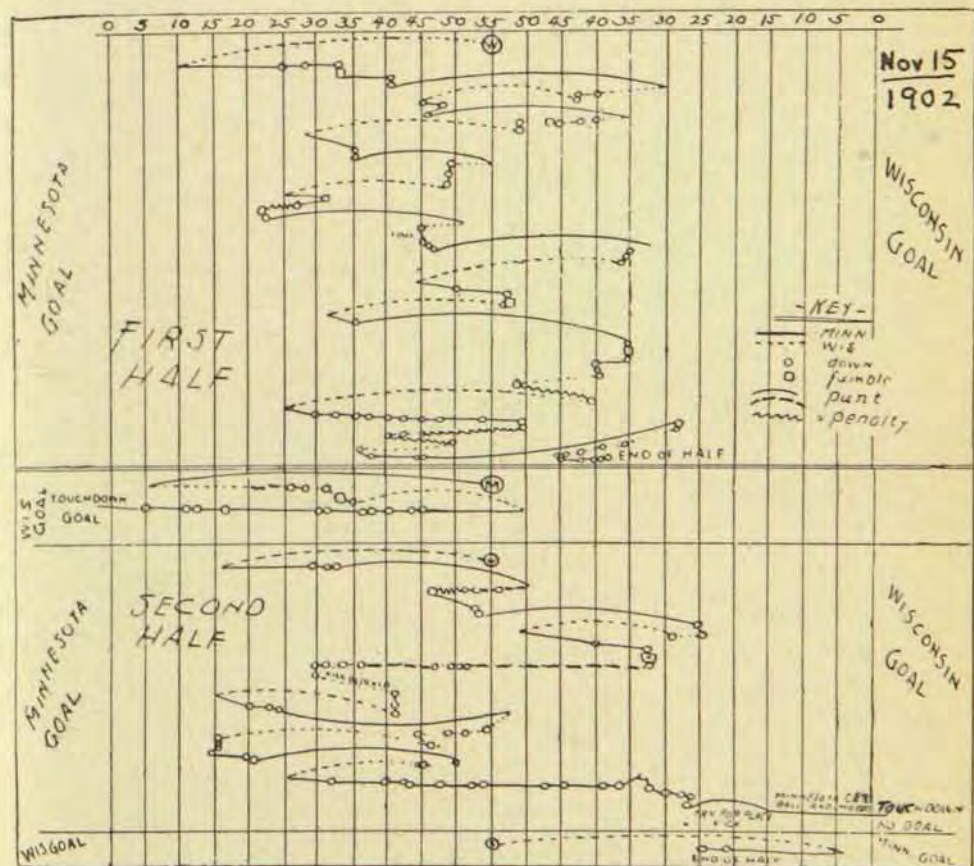 0 5 10 15 20 25 30 35 40 45 50 55 50 45 40 35 30 25 20 15 10 5 0
W
Nov 15
1902
MINNESOTA
GOAL
WISCONSIN
GOAL
FIRST
HALF
- KEY -
MINN
WIS
down
fumble
punt
penalty
END OF HALF
WIS
GOAL
TOUCHDOWN
GOAL
M
SECOND
HALF
MINNESOTA
GOAL
WISCONSIN
GOAL
TOUCHDOWN
NO GOAL
WIS GOAL
MINN
GOAL
END OF HALF